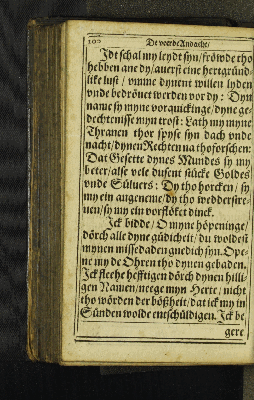 102 De veerde Andacht/
Idt schal my leydt syn/ fröwde tho
hebben ane dy/ auerst eine hertgründ-
like lust / vmme dynent willen lyden
vnde bedröuet werden vor dy: Dyn
name sy myne vorquickinge/ dyne ge-
dechtenisse myn trost: Lath my myne
Thranen thor spyse syn dach vnde
nacht/ dynen Rechten na thoforschen:
Dat Gesette dynes Mundes sy my
beter/ alse vele dusent stücke Goldes
vnde Süluers: Dy tho horcken/ sy
my ein angeneme/ dy tho weddersire-
uen/ sy my ein vorflöket dinck.
Ick bidde/ O myne höpeninge/
dörch alle dyne güdicheit/ du woldest
mynen missedaden gnedich syn. Ope-
ne my de Ohren tho dynen gebaden.
Ick flehe hefftigen dörch dynen hilli-
gen Namen/ neege myn Herte / nicht
tho wörden der bößheit/ dat ick my in
Sünden wolde entschüldigen. Ick be-
gere